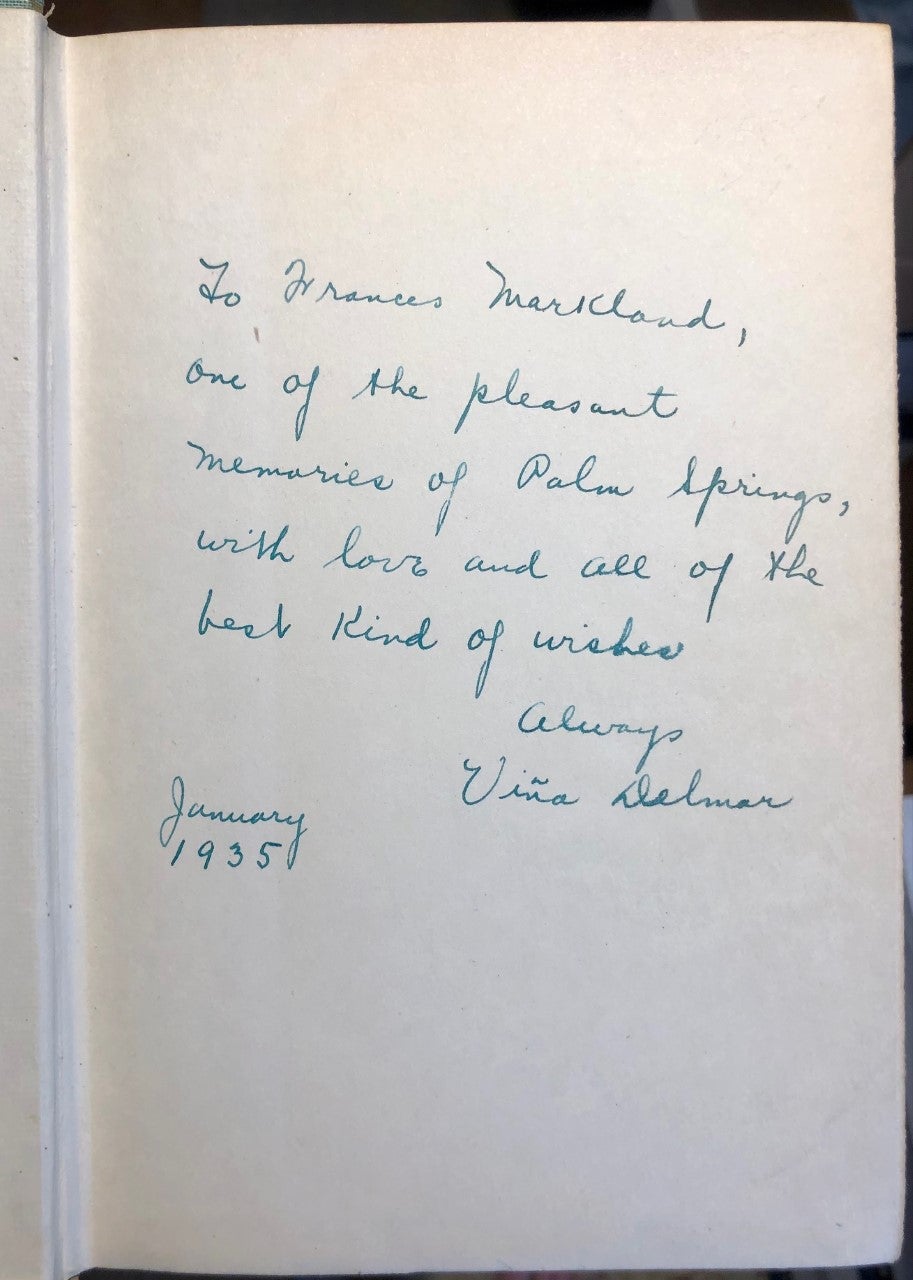 To Frances Markland,
one of the pleasant
memories of Palm Springs,
with love and all of the
best kind of wishes
Always
Viña Delmar
January
1935